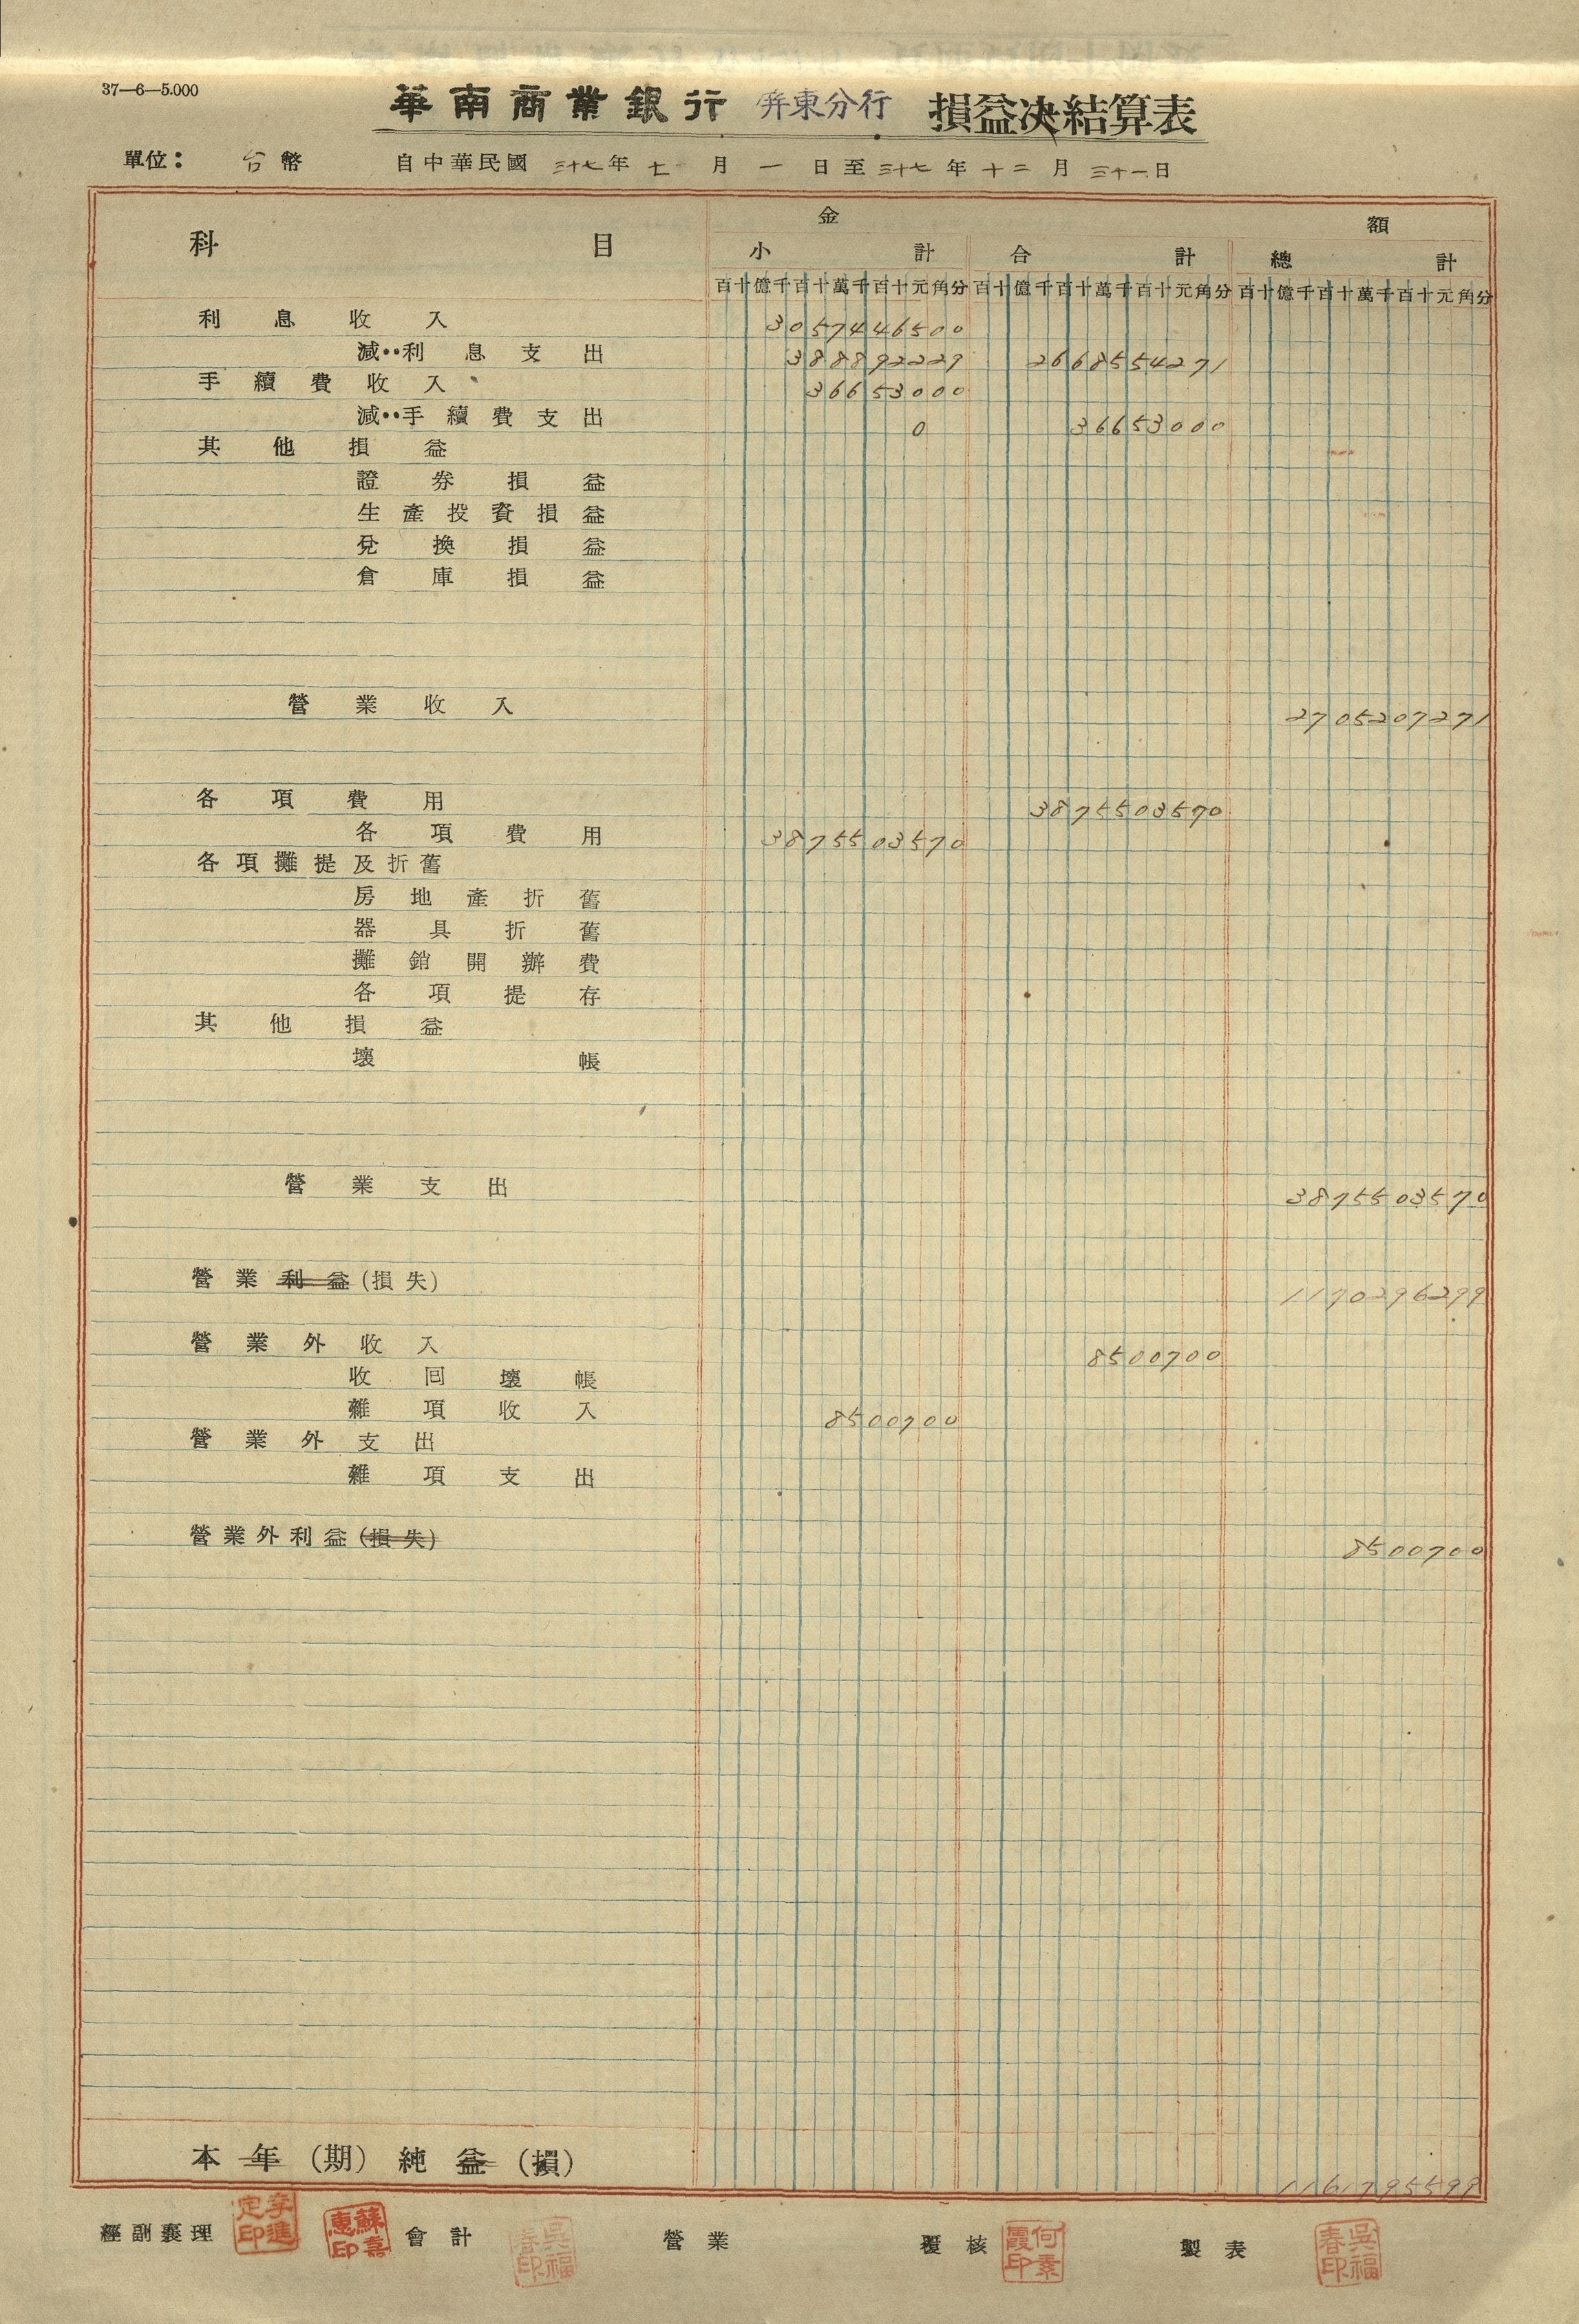 37—6—5.000
華南商業銀行 屏東分行 損益決結算表
單位： 台幣 自中華民國 三十七年 七 月 一 日至 三十七 年 十二 月 三十一日
金 額
科 目 小 計 合 計 總 計
百十億千百十萬千百十元角分 百十億千百十萬千百十元角分 百十億千百十萬千百十元角分
利息收入 3057446500
減：利息支出 388892229 2668554271
手續費收入 36653000
減：手續費支出 0 36653000
其他損益
證券損益
生產投資損益
兌換損益
倉庫損益
營業收入 2705207271
各項費用 3875503570
各項費用 3875503570
各項攤提及折舊
房地產折舊
器具折舊
攤銷開辦費
各項提存
其他損益
壞帳
營業支出 3875503570
營業利益(損失) 1170296299
營業外收入 8500700
收回壞帳
雜項收入 8500700
營業外支出
雜項支出
營業外利益(損失) 8500700
本年(期)純益(損) 1161795599
經副襄理 李進定印 蘇嘉惠印 會計 吳福春印 營業 覆核 何素霞印 製表 吳福春印